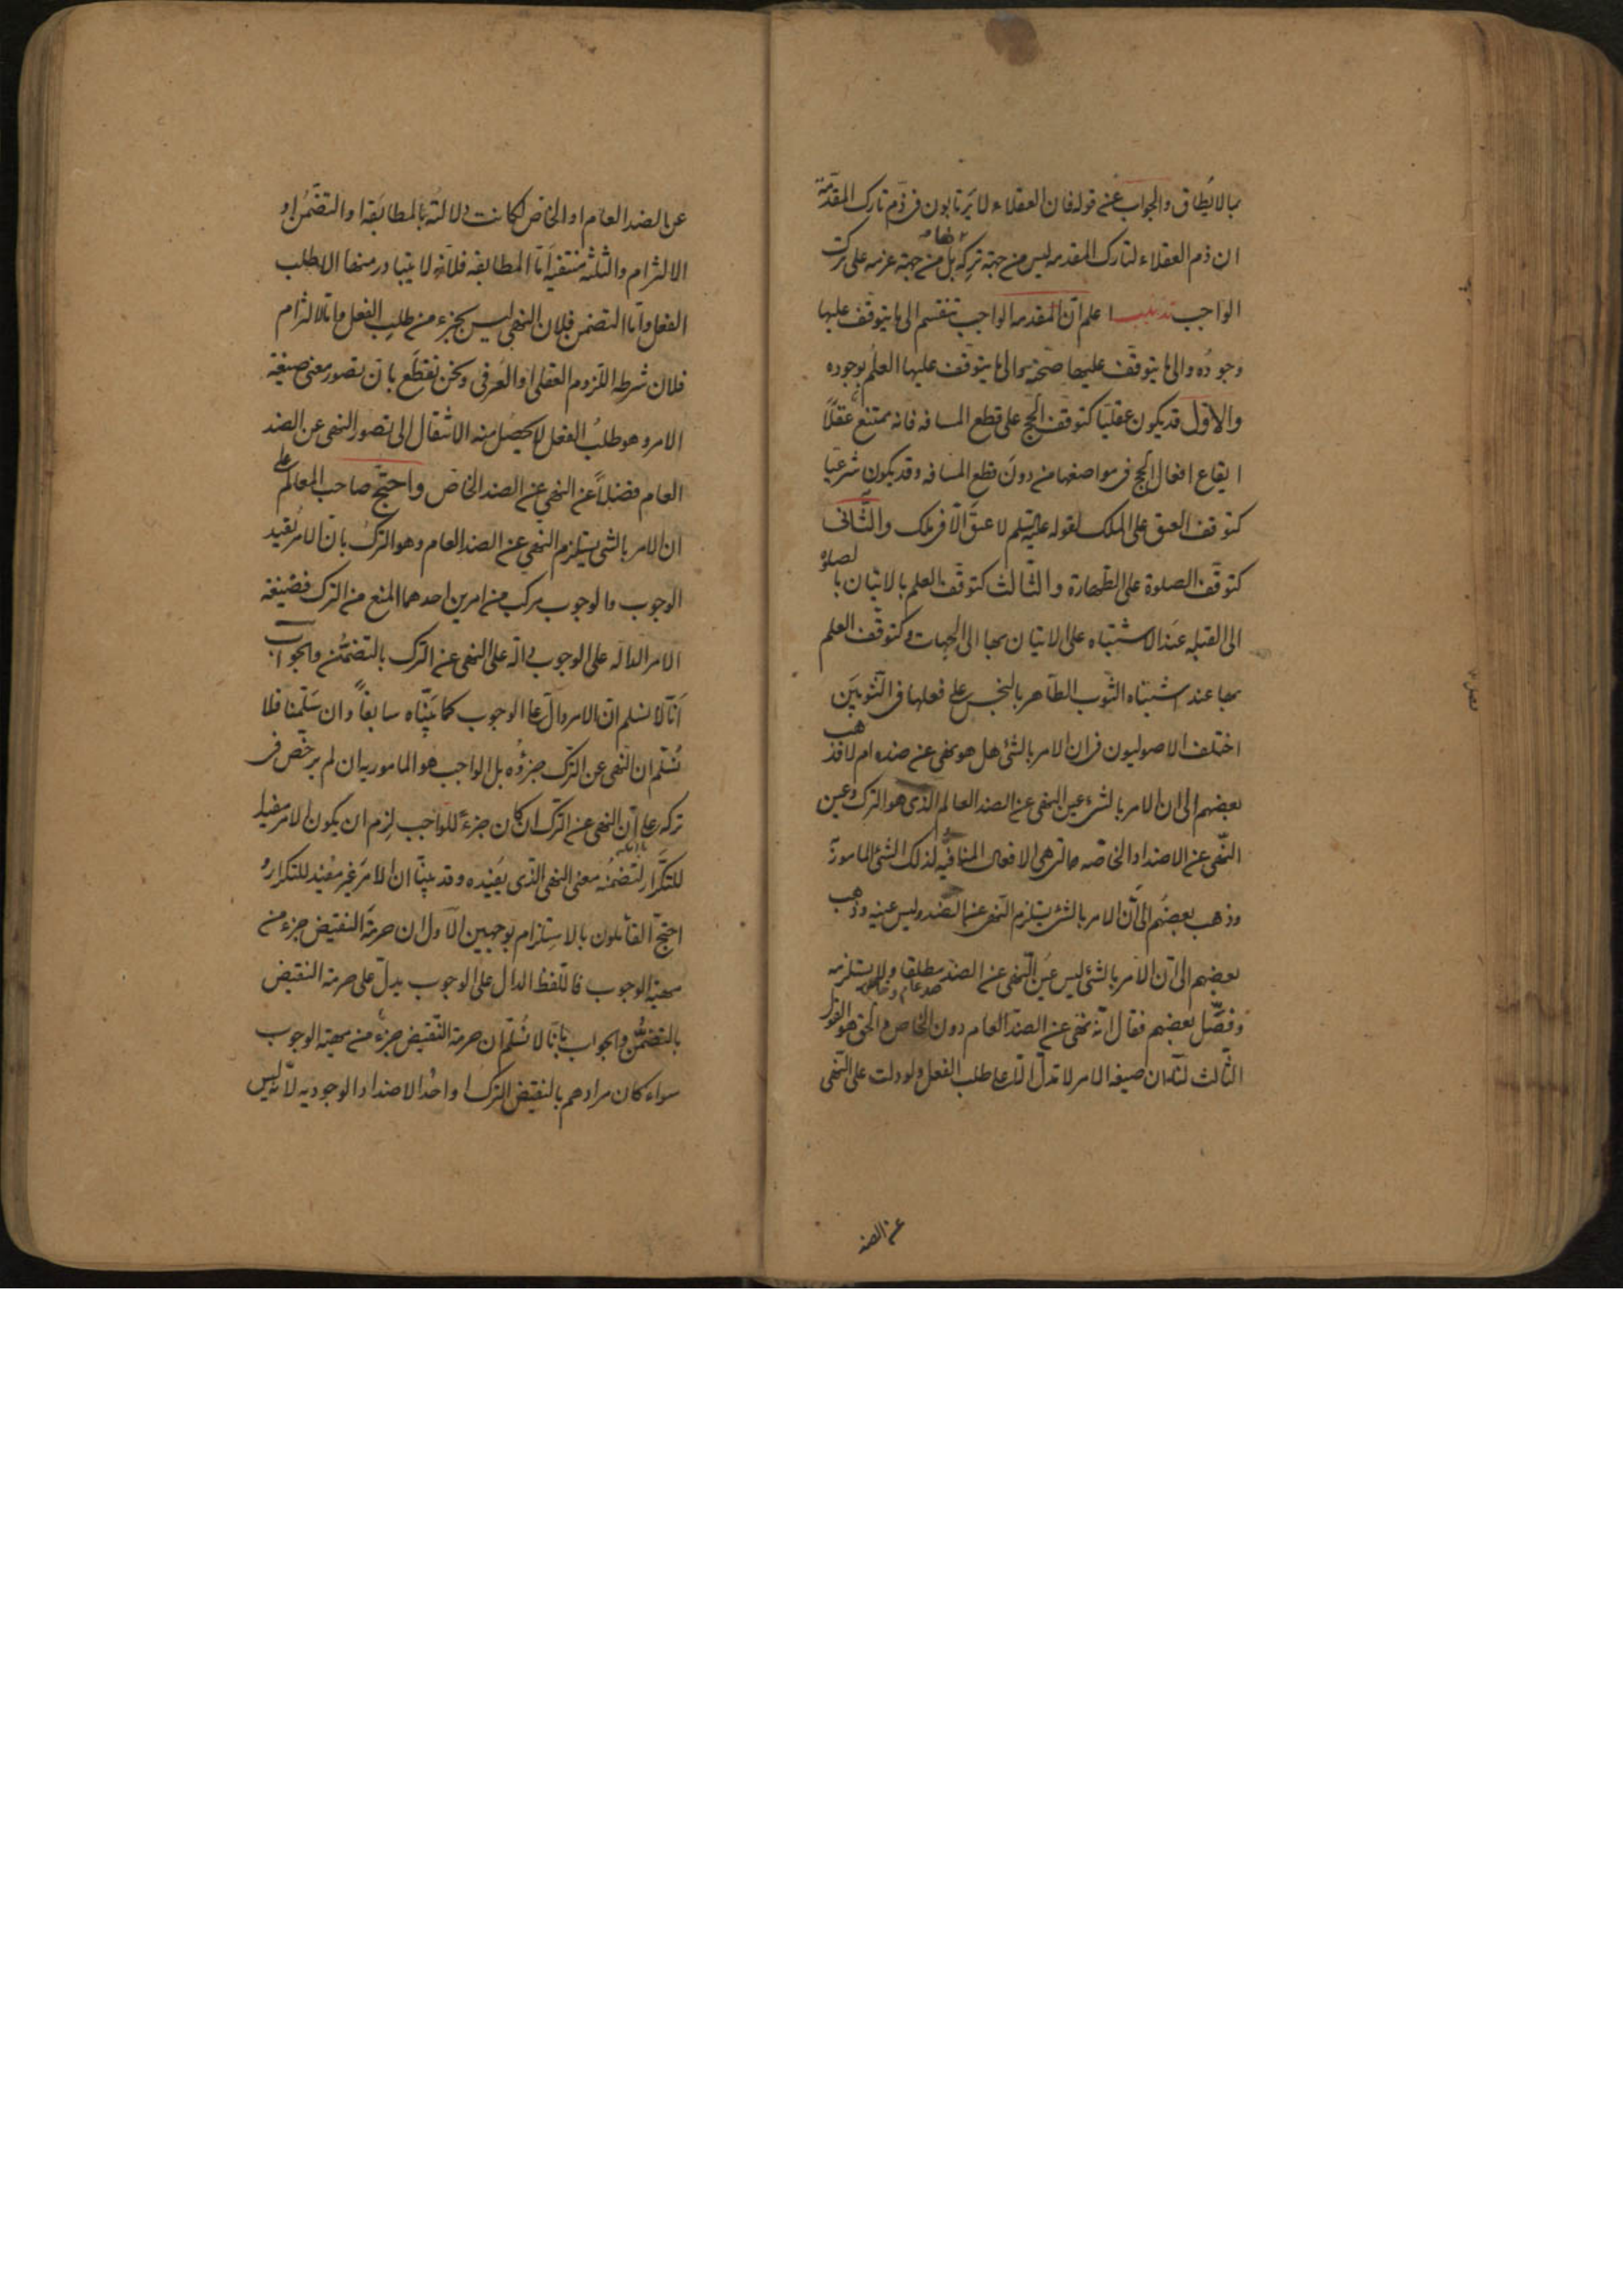 بمالا يُطاق والجواب عن قوله فان العقلاء لا يرتابون فى ذم تارك المقدّمة
ان ذم العقلاء لتارك المقدمه ليس من جهة تركه بل من جهة عزمه على ترك
الواجب تذنيب اعلم انّ المقدمه الواجب تنقسم الى ما يتوقف عليها
وجودُه والى ما يتوقّف عليها صحّته والى ما يتوقف عليها العلمُ بوجوده
والاوّل قد يكون عقليّا كتوقف الحج على قطع المسافه فانه يمتنع عقلاً
ايقاع افعال الحج فى مواضعها من دون قطع المسافه وقد يكون شرعيّا
كتوقف العتق على الملك لقوله عليه لا عتقَ الّا فى ملك والثّانى
كتوقّف الصلوة على الطّهارة والثّالث كتوقّف العلم بالاتيان بالصلوة
الى القبله عند الاشتباه على الاتيان بها الى الجهات وكتوقّف العلم
بها عند اشتباه الثّوب الطّاهر بالنجس على فعلها فى الثّوبين
اختلف الاصوليون فى ان الامر بالشئ هل هو نهى عن ضده ام لا فذهب
بعضهم الى ان الامر بالشئ عين النهى عن الضد العام الذى هو الترك وعين
النّهى عن الاضداد الخاصّه التى هى الافعال المنافيه لذلك الشئ المامور به
وذهب بعضهم الى انّ الامر بالشئ يستلزم النهى عن الضّد وليس عينه وذهب
بعضهم الى انّ الامر بالشئ ليس عين النّهى عن الضد مطلقا ولا يستلزمه
ضد عام وخاص
وفصّل بعضهم فقال انّه نهى عن الضدّ العام دون الخاص والحق هو القول
الثّالث لنا ان صيغه الامر لا تدلّ الّا على طلب الفعل ولو دلت على النّهى
عن الضد
عن الضد العام او الخاص لكانت دلالتُه بالمطابَقه او التضمّن او
الالتزام والثلثه منتفيه امّا المطابقه فلانّه لا يتبادر منها الا طلب
الفعل وامّا التضمن فلان النهى ليس بجزء من طلب الفعل وامّا الالتزام
فلان شرطه اللزوم العقلى او العُرفى ونحن نقطع بان تصور معنى صيغة
الامر وهو طلبُ الفعل لا يحصل منه الانتقال الى تصور النهى عن الضد
العام فضلاً عن النهى عن الضد الخاص واحتجّ صاحب المعالم على
ان الامر بالشئ يستلزم النهى عن الضد العام وهو الترك بانّ الامر يُفيد
الوجوب والوجوب مركب من امرين احدهما المنع من الترك فصيغة
الامر الداله على الوجوب دالّة على النهى عن الترك بالتضمّن والجواب
انّا لا نسلم ان الامر دالّ على الوجوب كما بيّنّاه سابقاً وان سَلّمنا فلا
نُسَلّم ان النهى عن الترك جزؤه بل الواجب هو المامور به ان لم يرخص فى
تركه على انّ النهى عن الترك ان كان جزءً للواجب لزم ان يكون الامر مفيدا
للتكرار لتضمنُه معنى النهى الذى يفيده وقد بيّنّا ان الامر غير مفيد للتكرار و
احتجّ القائلون بالاستلزام بوجهين الاول ان حرمة النقيض جزء من
مهيّة الوجوب فاللّفظ الدال على الوجوب يدلّ على حرمة النقيض
بالتضمّن والجواب بانّا لا نُسَلّم ان حرمة النّقيض جزءٌ من مهية الوجوب
سواء كان مرادهم بالنقيض الترك او احد الاضداد الوجوديه لانّه ليس